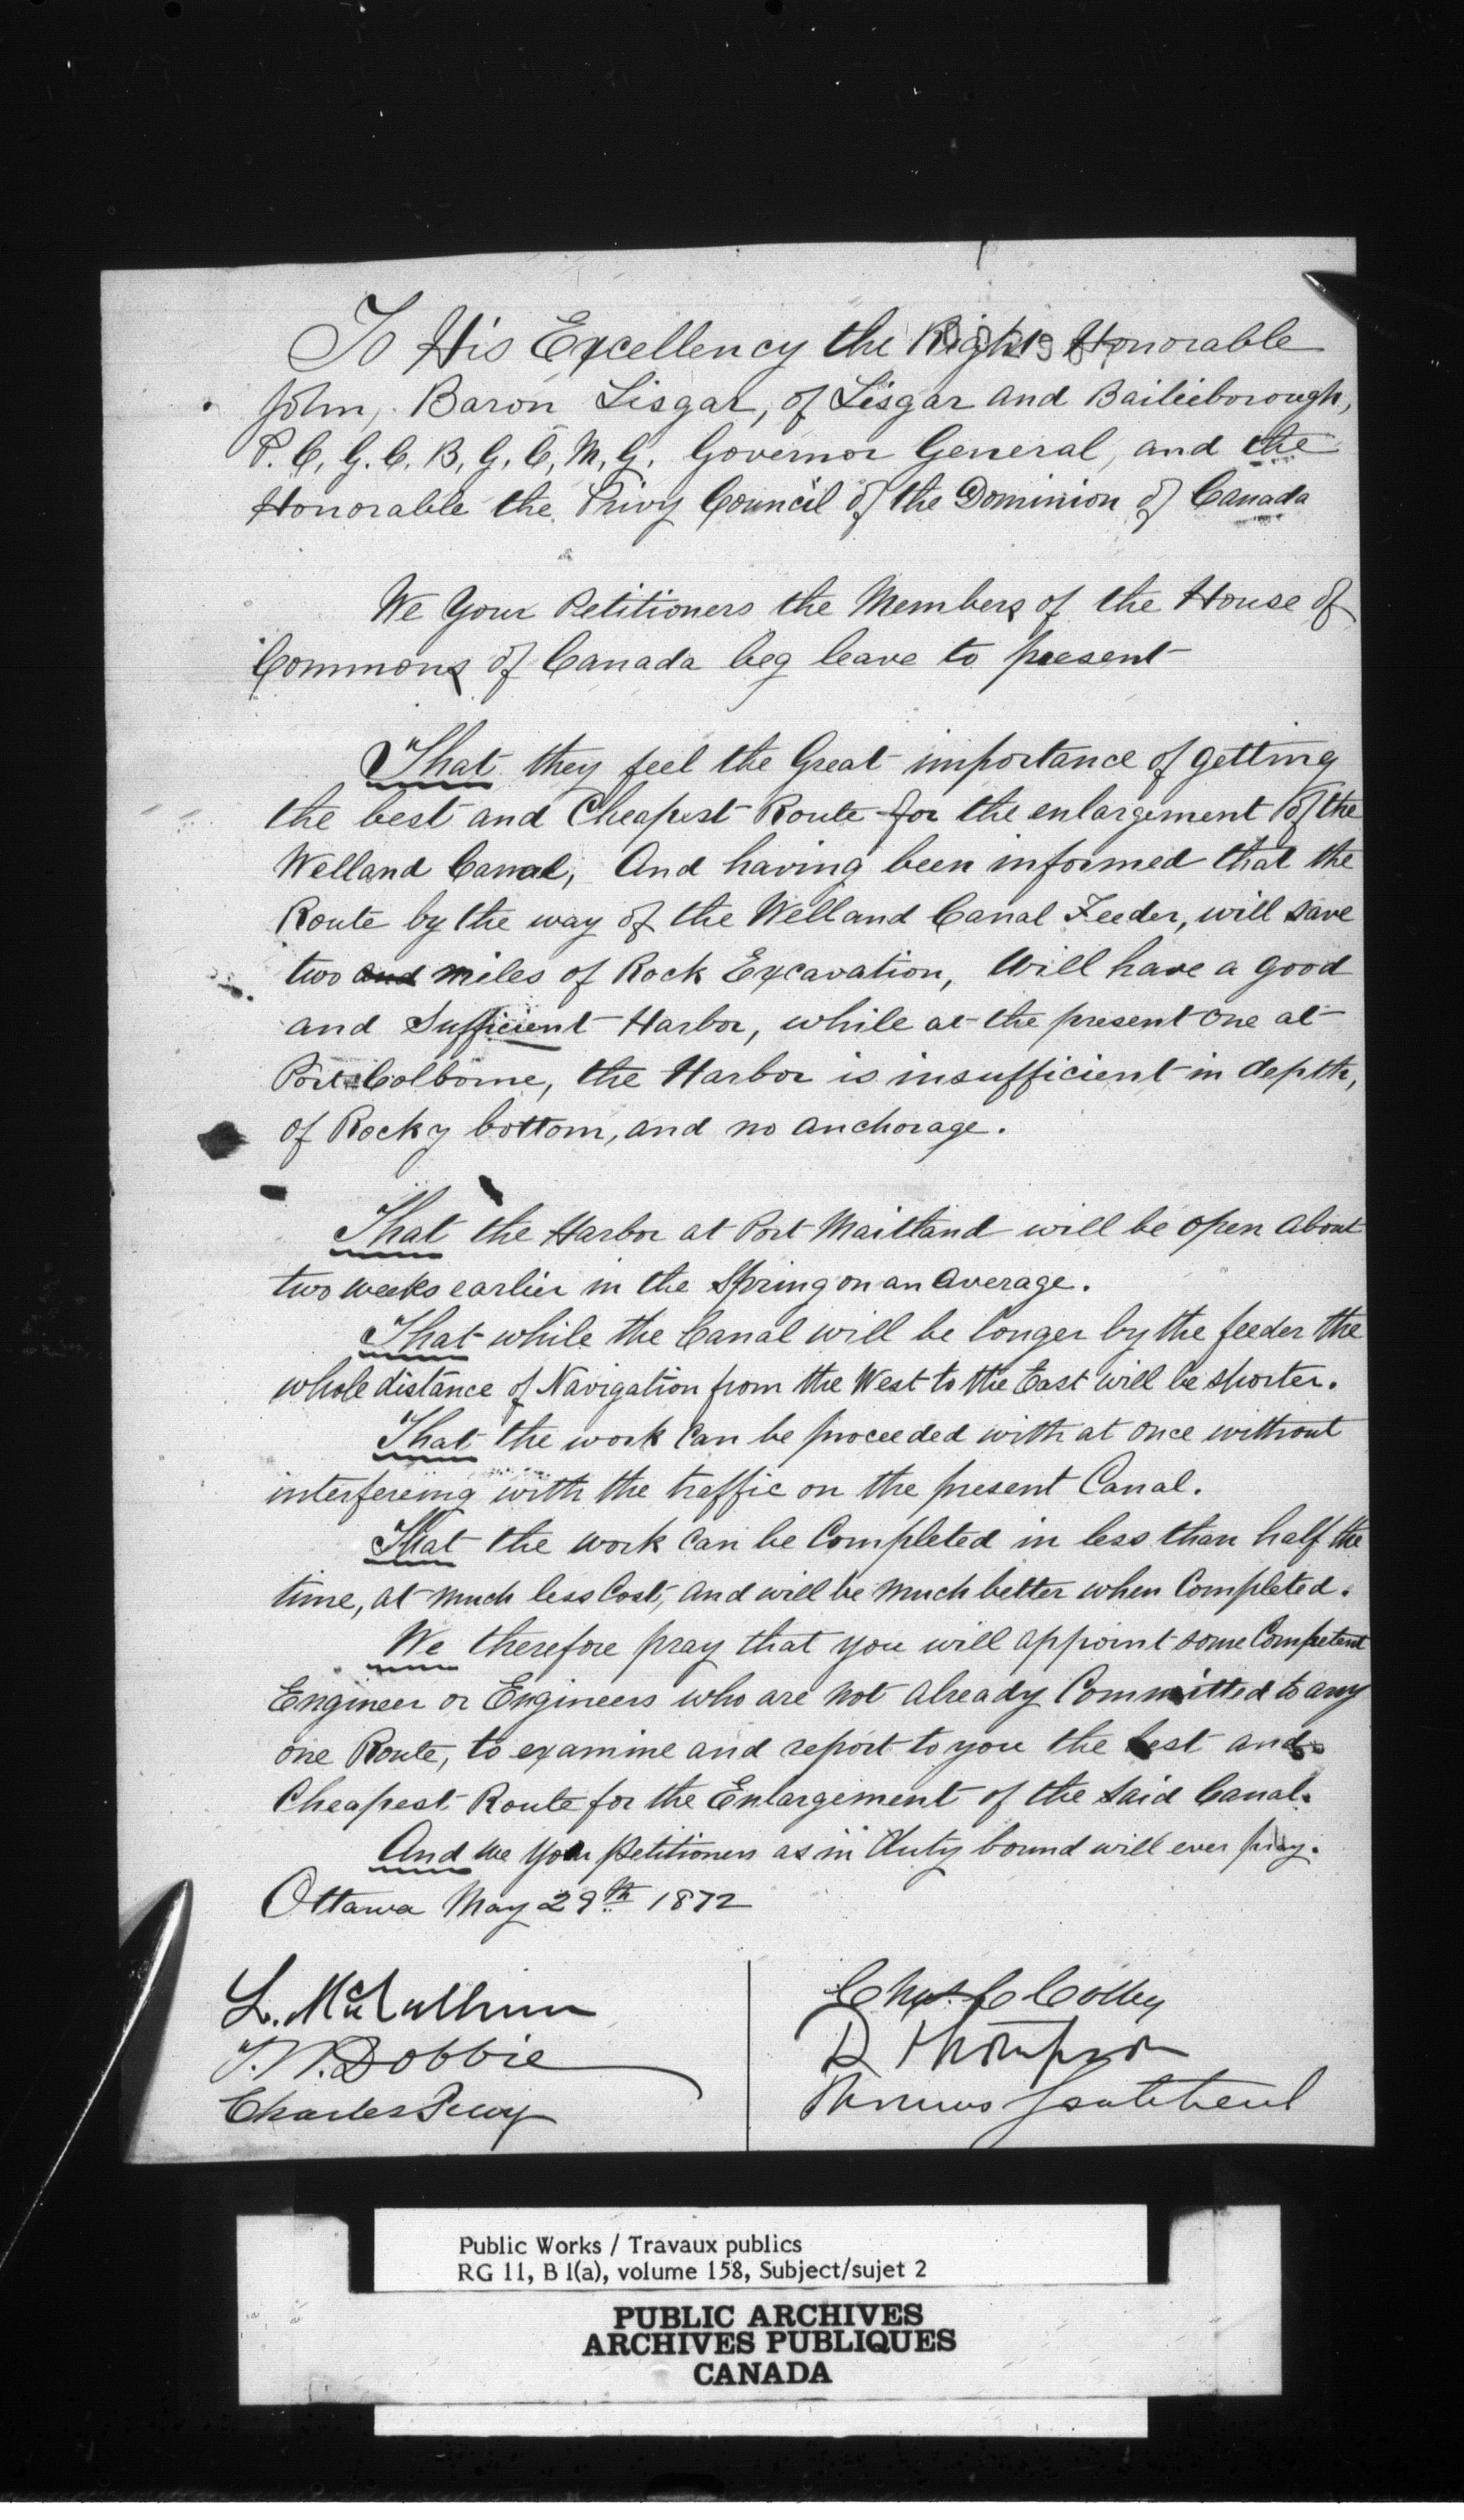 To His Excellency the Right Honorable
John, Baron Lisgar, of Lisgar and Bailieborough,
P. C, G. C. B, G, C, M, G. Governor General, and the
Honorable the Privy Council of the Dominion of Canada
We Your Petitioners the Members of the House of
Commons of Canada beg leave to present
That they feel the Great importance of getting
the best and Cheapest Route for the enlargement of the
Welland Canal, And having been informed that the
Route by the way of the Welland Canal Feeder, will save
two and miles of Rock Excavation, Will have a good
and Sufficient Harbor, while at the present one at
Port Colborne, the Harbor is insufficient in depth,
of Rocky bottom, and no anchorage.
That the Harbor at Port Maitland will be open about
two weeks earlier in the Spring on an average.
That while the Canal will be longer by the feeder the
whole distance of Navigation from the West to the East will be shorter.
That the work can be proceeded with at once without
interfereing with the traffic on the present Canal.
That the work can be Completed in less than half the
time, at much less Cost, and will be much better when Completed.
We therefore pray that you will appoint some Competent
Engineer or Engineers who are not already Committed to any
one Route, to examine and report to you the best and
Cheapest Route for the Enlargement of the said Canal.
And we your petitioners as in duty bound will ever pray.
Ottawa May 29th 1872
L. McCallum
T. W. Dobbie
Charles
Chas. C Colby
D Thompson
Thomas
Public Works / Travaux publics
RG 11, B 1(a), volume 158, Subject/sujet 2
PUBLIC ARCHIVES
ARCHIVES PUBLIQUES
CANADA